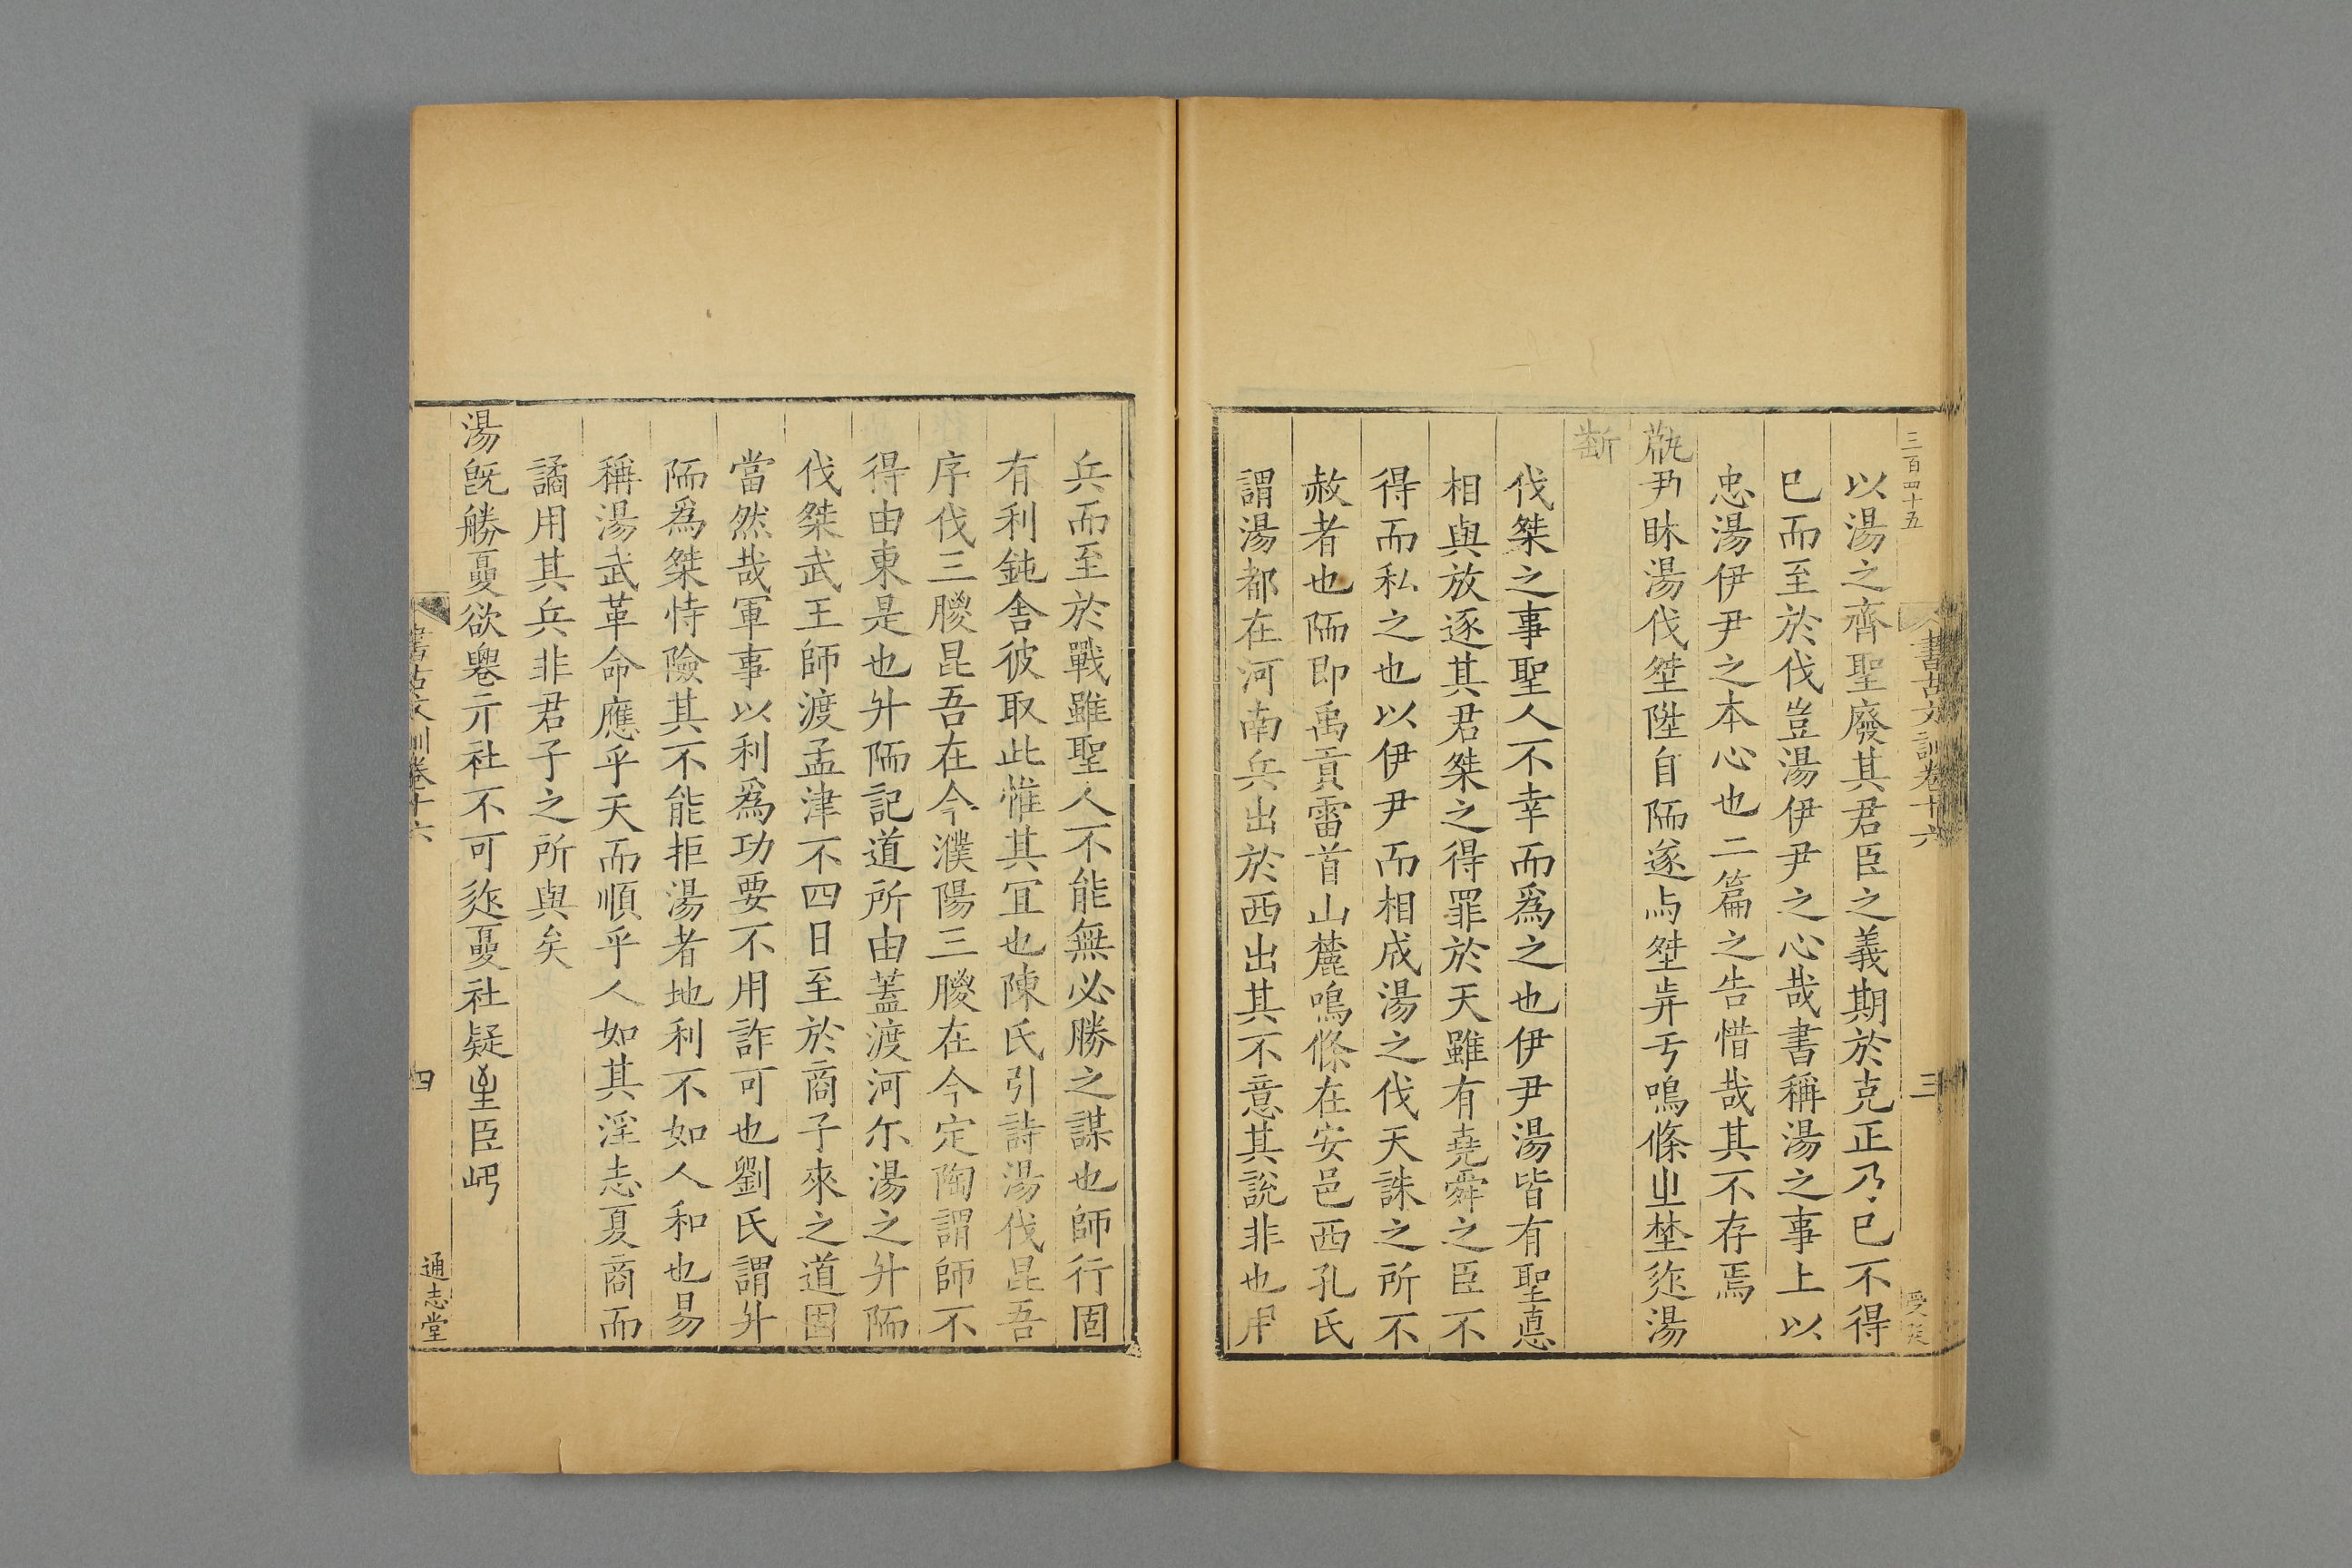 三百四十五
書古文訓卷十六
三
以湯之齊聖廢其君臣之義期於克正乃已不得
已而至於伐豈湯伊尹之心哉書稱湯之事上以
忠湯伊尹之本心也二篇之告惜哉其不存焉
湯伐陞自陑遂鳴條湯
斷
伐桀之事聖人不幸而爲之也伊尹湯皆有聖悳
相與放逐其君桀之得罪於天雖有堯舜之臣不
得而私之也以伊尹而相成湯之伐天誅之所不
赦者也陑即禹貢雷首山麓鳴條在安邑西孔氏
謂湯都在河南兵出於西出其不意其說非也用
兵而至於戰雖聖人不能無必勝之謀也師行固
有利鈍舍彼取此惟其宜也陳氏引詩湯伐昆吾
序伐三朡昆吾在今濮陽三朡在今定陶謂師不
得由東是也升陑記道所由蓋渡河尒湯之升陑
伐桀武王師渡孟津不四日至於商子來之道固
當然哉軍事以利爲功要不用詐可也劉氏謂升
陑爲桀恃險其不能拒湯者地利不如人和也易
稱湯武革命應乎天而順乎人如其淫志夏商而
譎用其兵非君子之所與矣
湯旣勝欲亓社不可社疑臣
書古文訓卷十六
四
通志堂